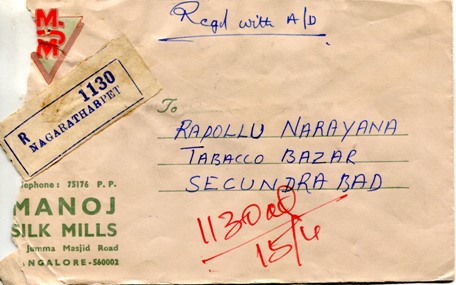 Regd with A/D
M.
M.
R 1130
NAGARATHARPET
To
RAPOLLU NARAYANA
TABACCO BAZAR
SECUNDRABAD
elephone : 75176 P. P.
MANOJ
SILK MILLS
Jumma Masjid Road
NGALORE-560002
15/4